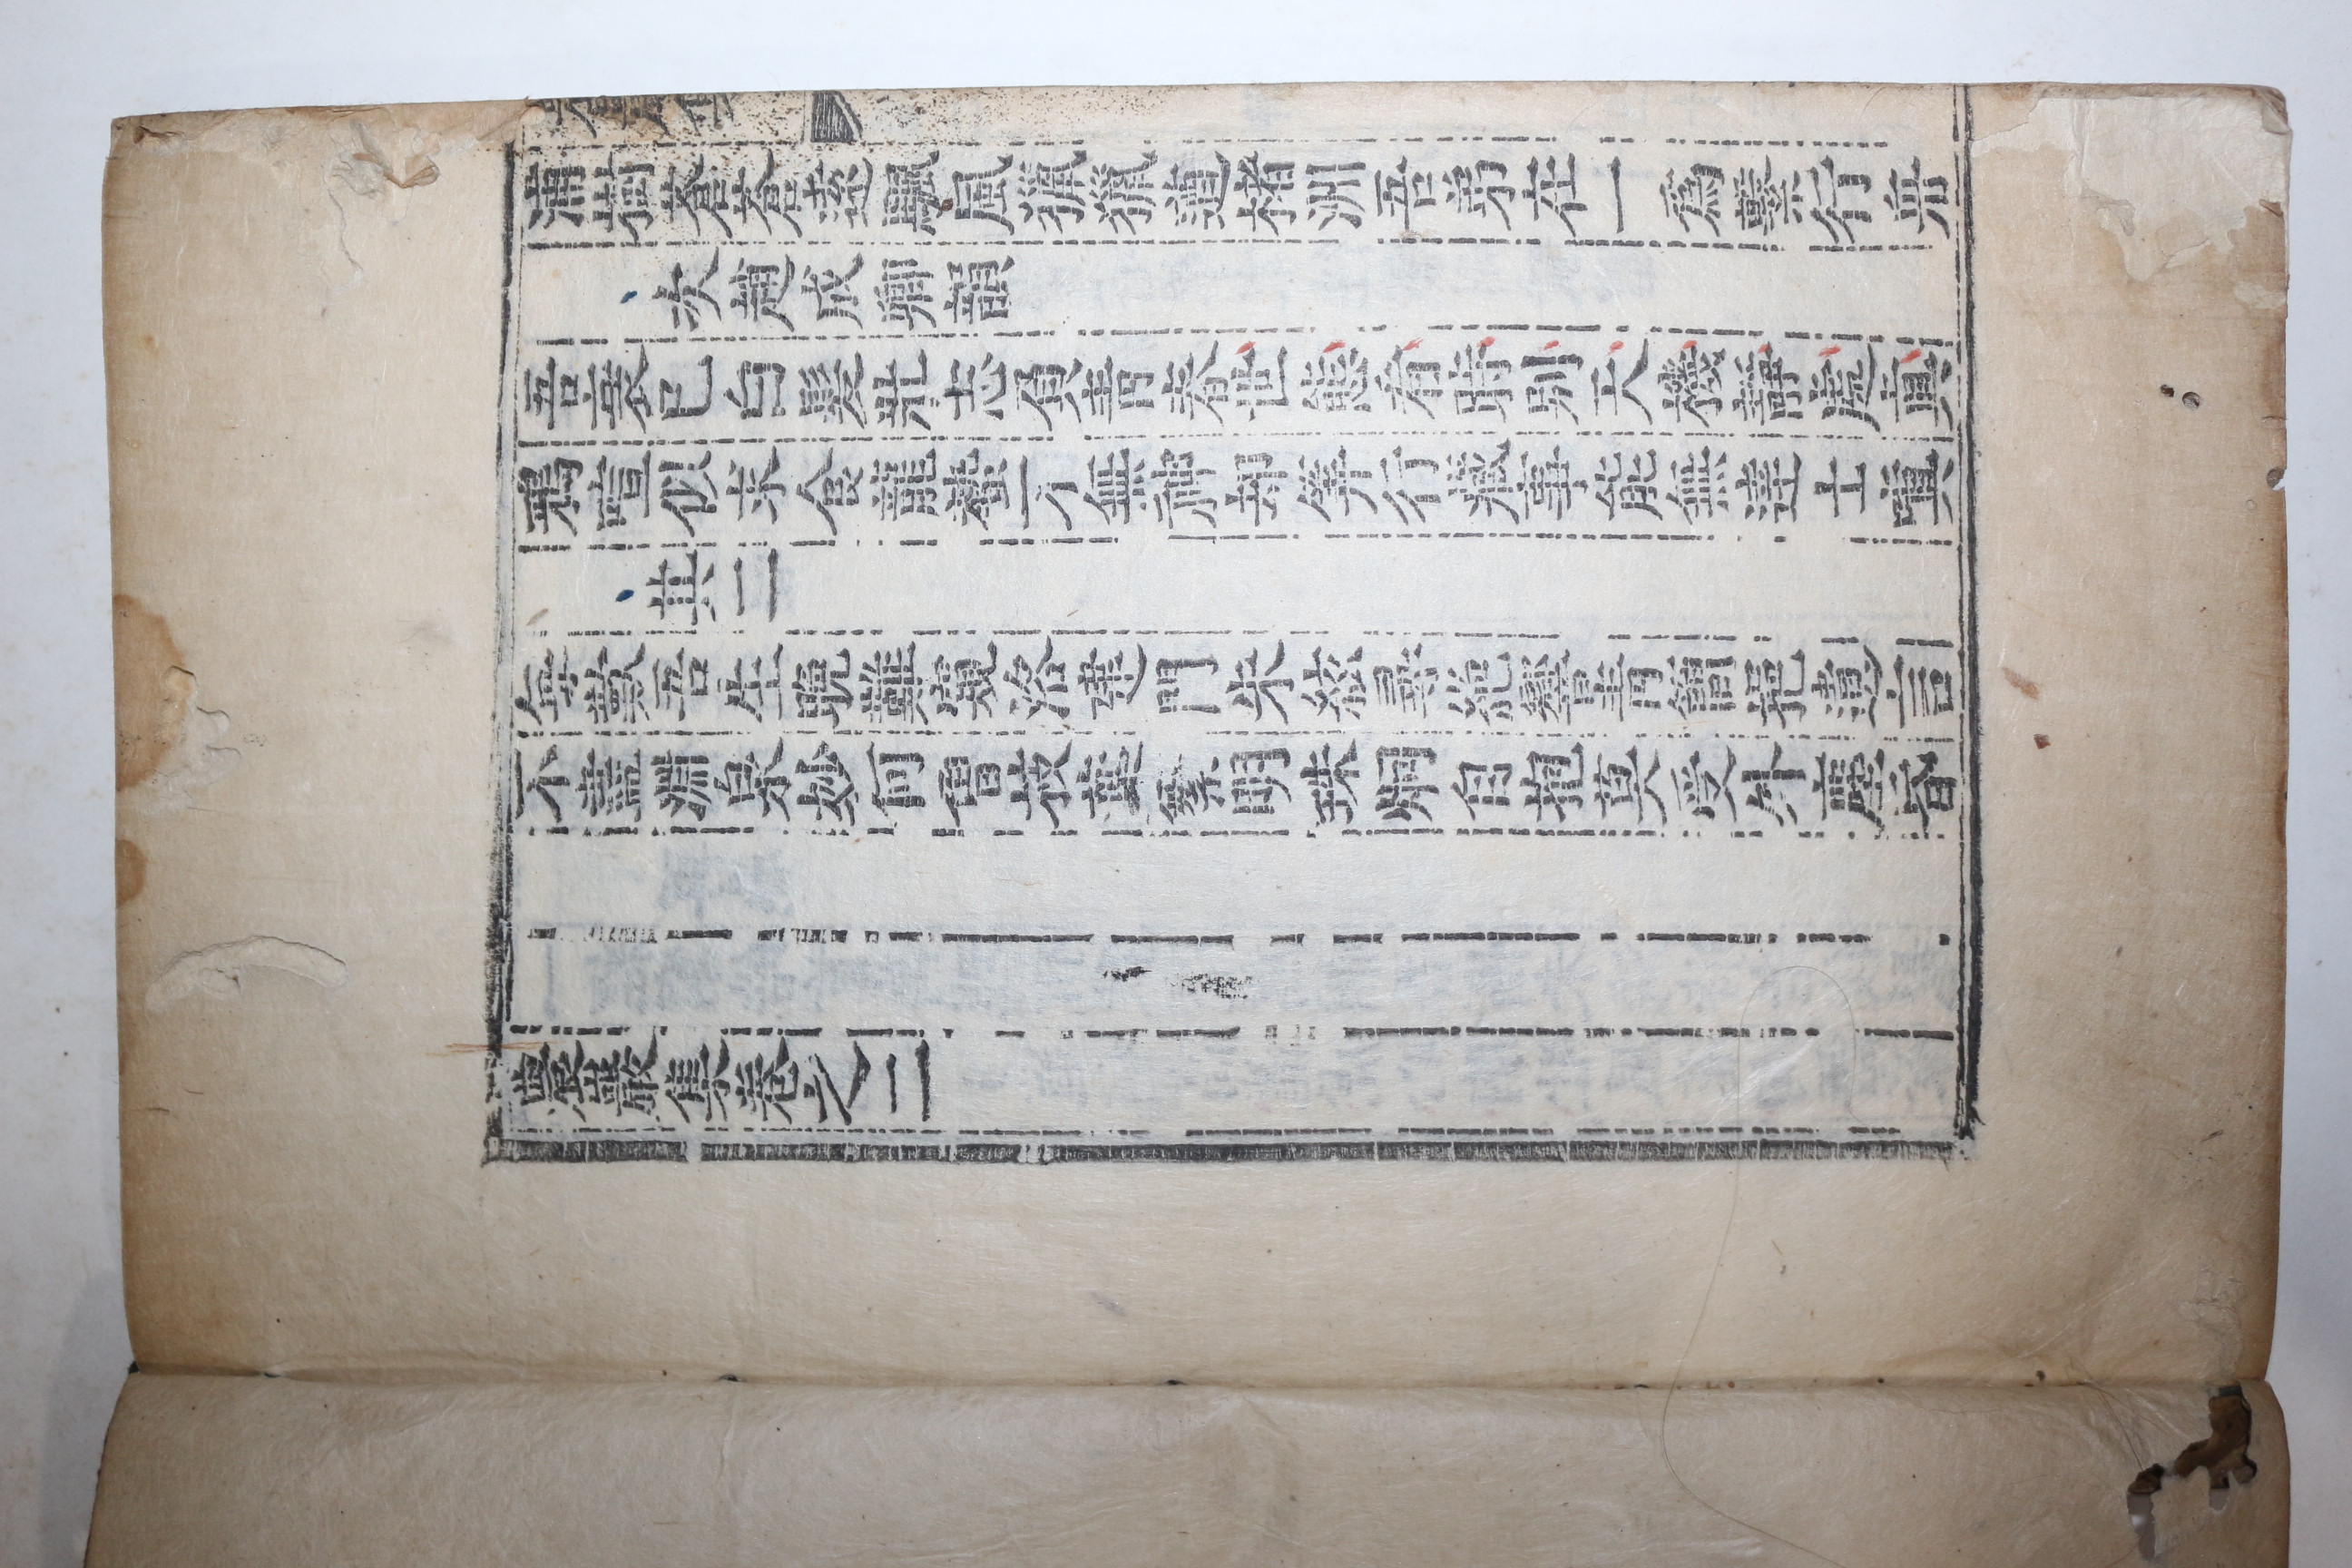 浦樹蒼蒼遠颿風獵獵遒楮洲吾弟在一爲繫行舟
次趙成卿韻
吾衰已白髮壯志負青春世態看時別天機語處真
鴉喧似求食龍蟄不無神却筭行藏事能無達士嚬
其二
每歎吾生晚難窺洛建門朱絃尋絶響青簡抱遺言
不盡淵泉妙何曾枝葉繁明珠炯自抱莫受外塵昏
農巖集卷之二